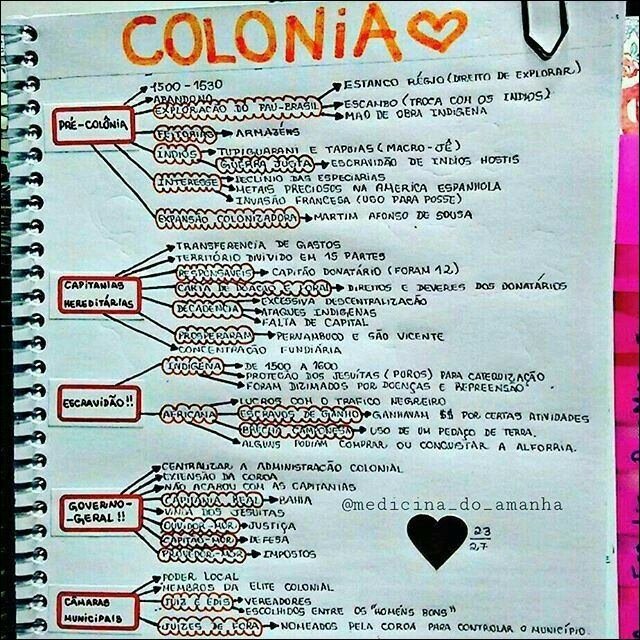 COLONIA
PRÉ-COLÔNIA
1500-1530
ABANDONO
EXPLORAÇÃO DO PAU-BRASIL
ESTANCO RÉGIO (DIREITO DE EXPLORAR)
ESCAMBO (TROCA COM OS INDIOS)
MÃO DE OBRA INDIGENA
FEITORIAS
ARMAZÉNS
INDIOS
TUPIGUARANI E TAPUIAS (MACRO-JÊ)
GUERRA JUSTA
ESCRAVIDÃO DE INDIOS HOSTIS
INTERESSE
DECLÍNIO DAS ESPECIARIAS
METAIS PRECIOSOS NA AMERICA ESPANHOLA
INVASÃO FRANCESA (USO PARA POSSE)
EXPANSÃO COLONIZADORA
MARTIM AFONSO DE SOUSA
CAPITANIAS HEREDITÁRIAS
TRANSFERENCIA DE GASTOS
TERRITÓRIO DIVIDO EM 15 PARTES
RESPONSAVEIS
CAPITÃO DONATÁRIO (FORAM 12)
CARTA DE DOAÇÃO E FORAL
DIREITOS E DEVERES DOS DONATÁRIOS
DECADENCIA
EXCESSIVA DESCENTRALIZAÇÃO
ATAQUES INDIGENAS
FALTA DE CAPITAL
PROSPERARAM
PERNAMBUCO E SÃO VICENTE
CONCENTRAÇÃO FUNDIÁRIA
ESCRAVIDÃO!!
INDIGENA
DE 1500 A 1600
PROTEÇÃO DOS JESUÍTAS (PUROS) PARA CATEQUIZAÇÃO
FORAM DIZIMADOS POR DOENÇAS E REPREENSÃO
AFRICANA
LUCROS COM O TRAFICO NEGREIRO
ESCRAVOS DE GANHO
GANHAVAM $$ POR CERTAS ATIVIDADES
BRECHA CAMPONESA
USO DE UM PEDAÇO DE TERRA.
ALGUNS PODIAM COMPRAR OU CONQUISTAR A ALFORRIA.
GOVERNO-
-GERAL!!
CENTRALIZAR A ADMINISTRAÇÃO COLONIAL
EXTENSÃO DA COROA
NÃO ACABOU COM AS CAPITANIAS
CAPITANIA REAL
BAHIA
VINDA DOS JESUITAS
OUVIDOR-MOR
JUSTIÇA
CAPITÃO-MOR
DEFESA
PROVEDOR-MOR
IMPOSTOS
@medicina_do_amanha
23
27
CÂMARAS MUNICIPAIS
PODER LOCAL
MEMBROS DA ELITE COLONIAL
JUIZ E EDIS
VEREADORES
ESCOLHIDOS ENTRE OS "HOMENS BONS"
JUIZES DE FORA
NOMEADOS PELA COROA PARA CONTROLAR O MUNICÍPIO.